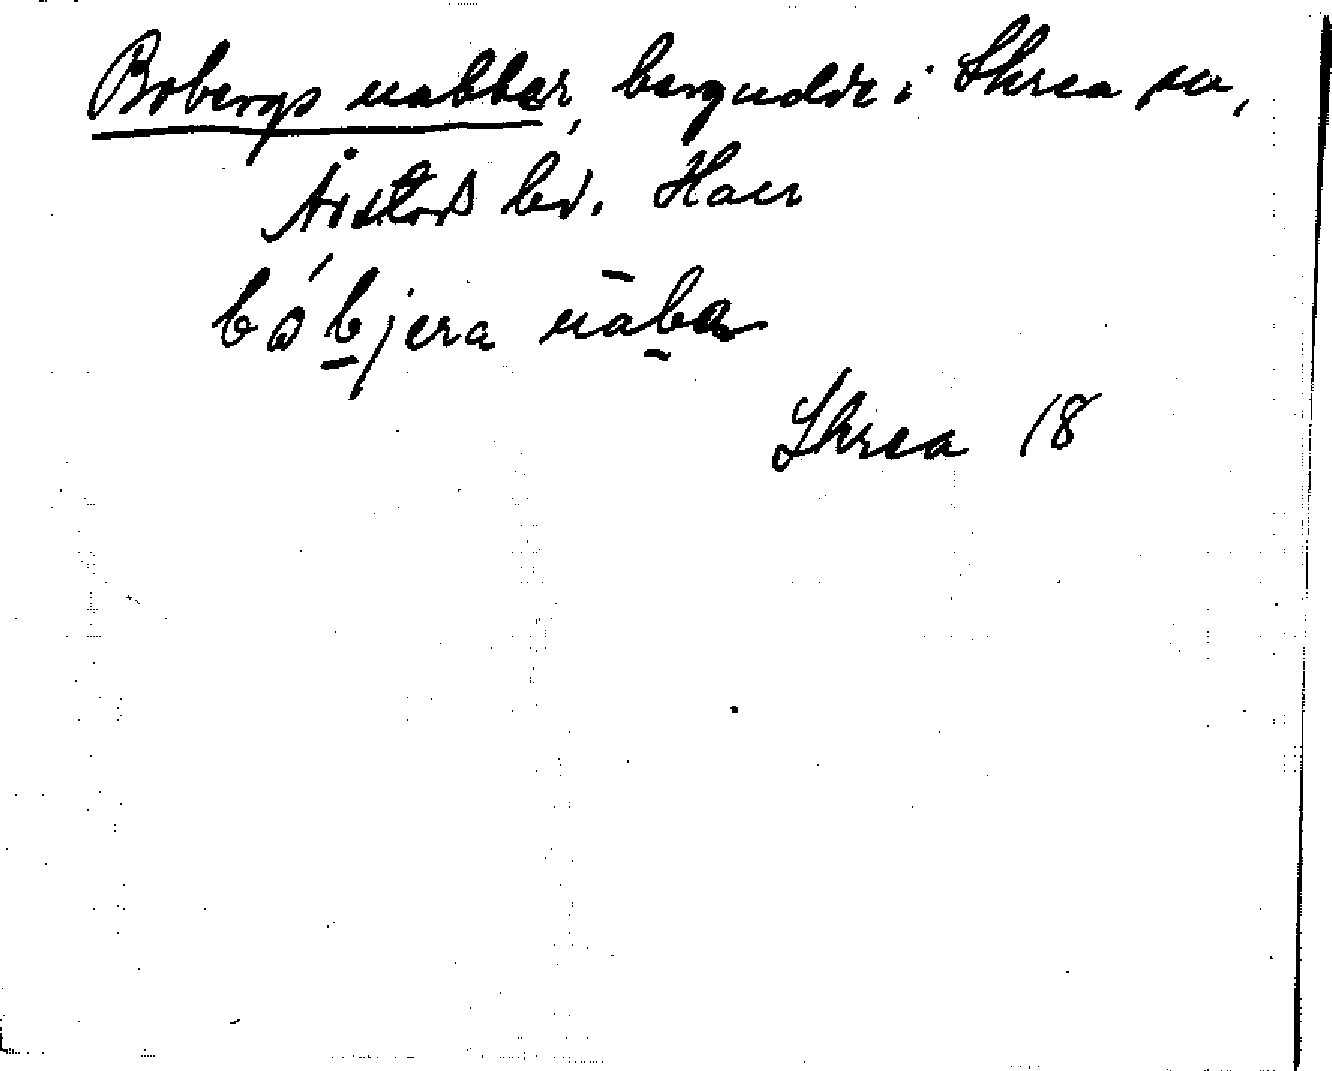 Bobergs nabbar, bergudde i Skrea sn,
Årstads hd. Hall
bo´bjera naba
Skrea 18